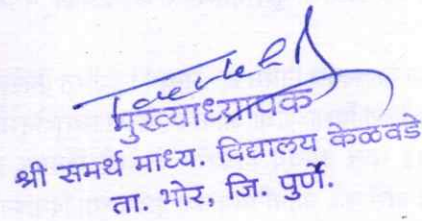 मुख्याध्यापक
श्री समर्थ माध्य. विद्यालय केळवडे
ता. भोर, जि. पुणें.